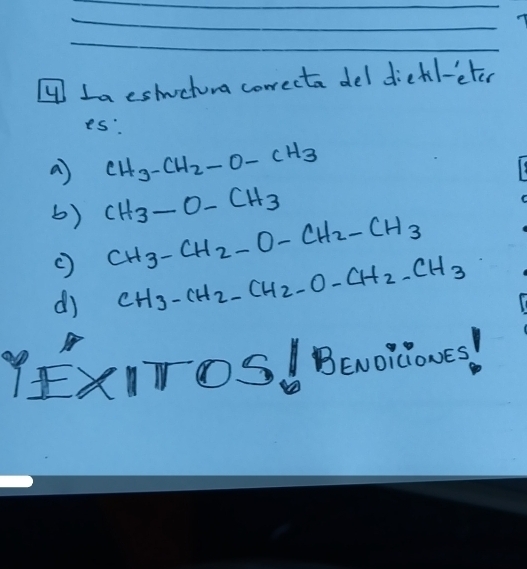 4 La estructura correcta del dietil-éter
es:
a) CH3-CH2-O-CH3
b) CH3-O-CH3
c) CH3-CH2-O-CH2-CH3
d) CH3-CH2-CH2-O-CH2-CH3
¡ÉXITOS! BENDICIONES!